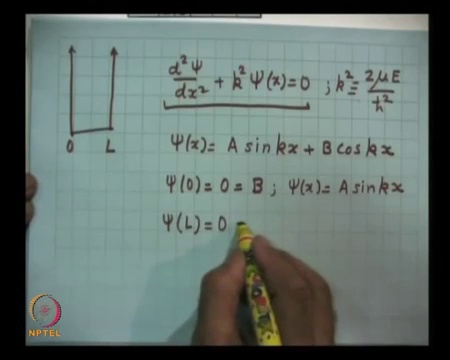 d²Ψ/dx² + k² Ψ(x) = 0 ; k² = 2μE/ħ²
0 L
Ψ(x) = A sin kx + B cos kx
Ψ(0) = 0 = B ; Ψ(x) = A sin kx
Ψ(L) = 0
NPTEL